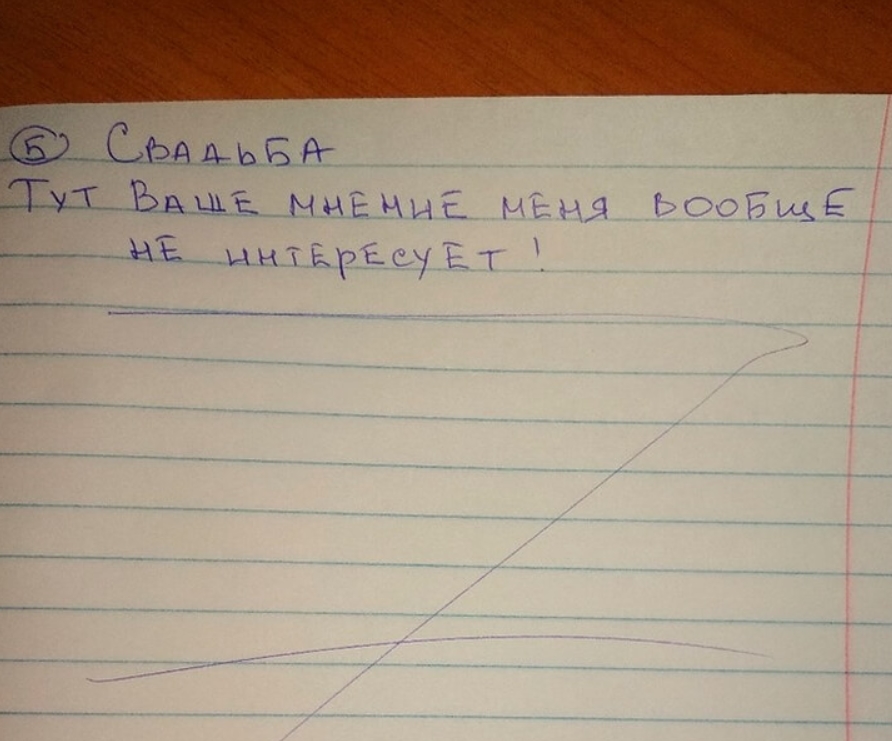 5 Свадьба
Тут Ваше мнение меня вообще
не интересует!